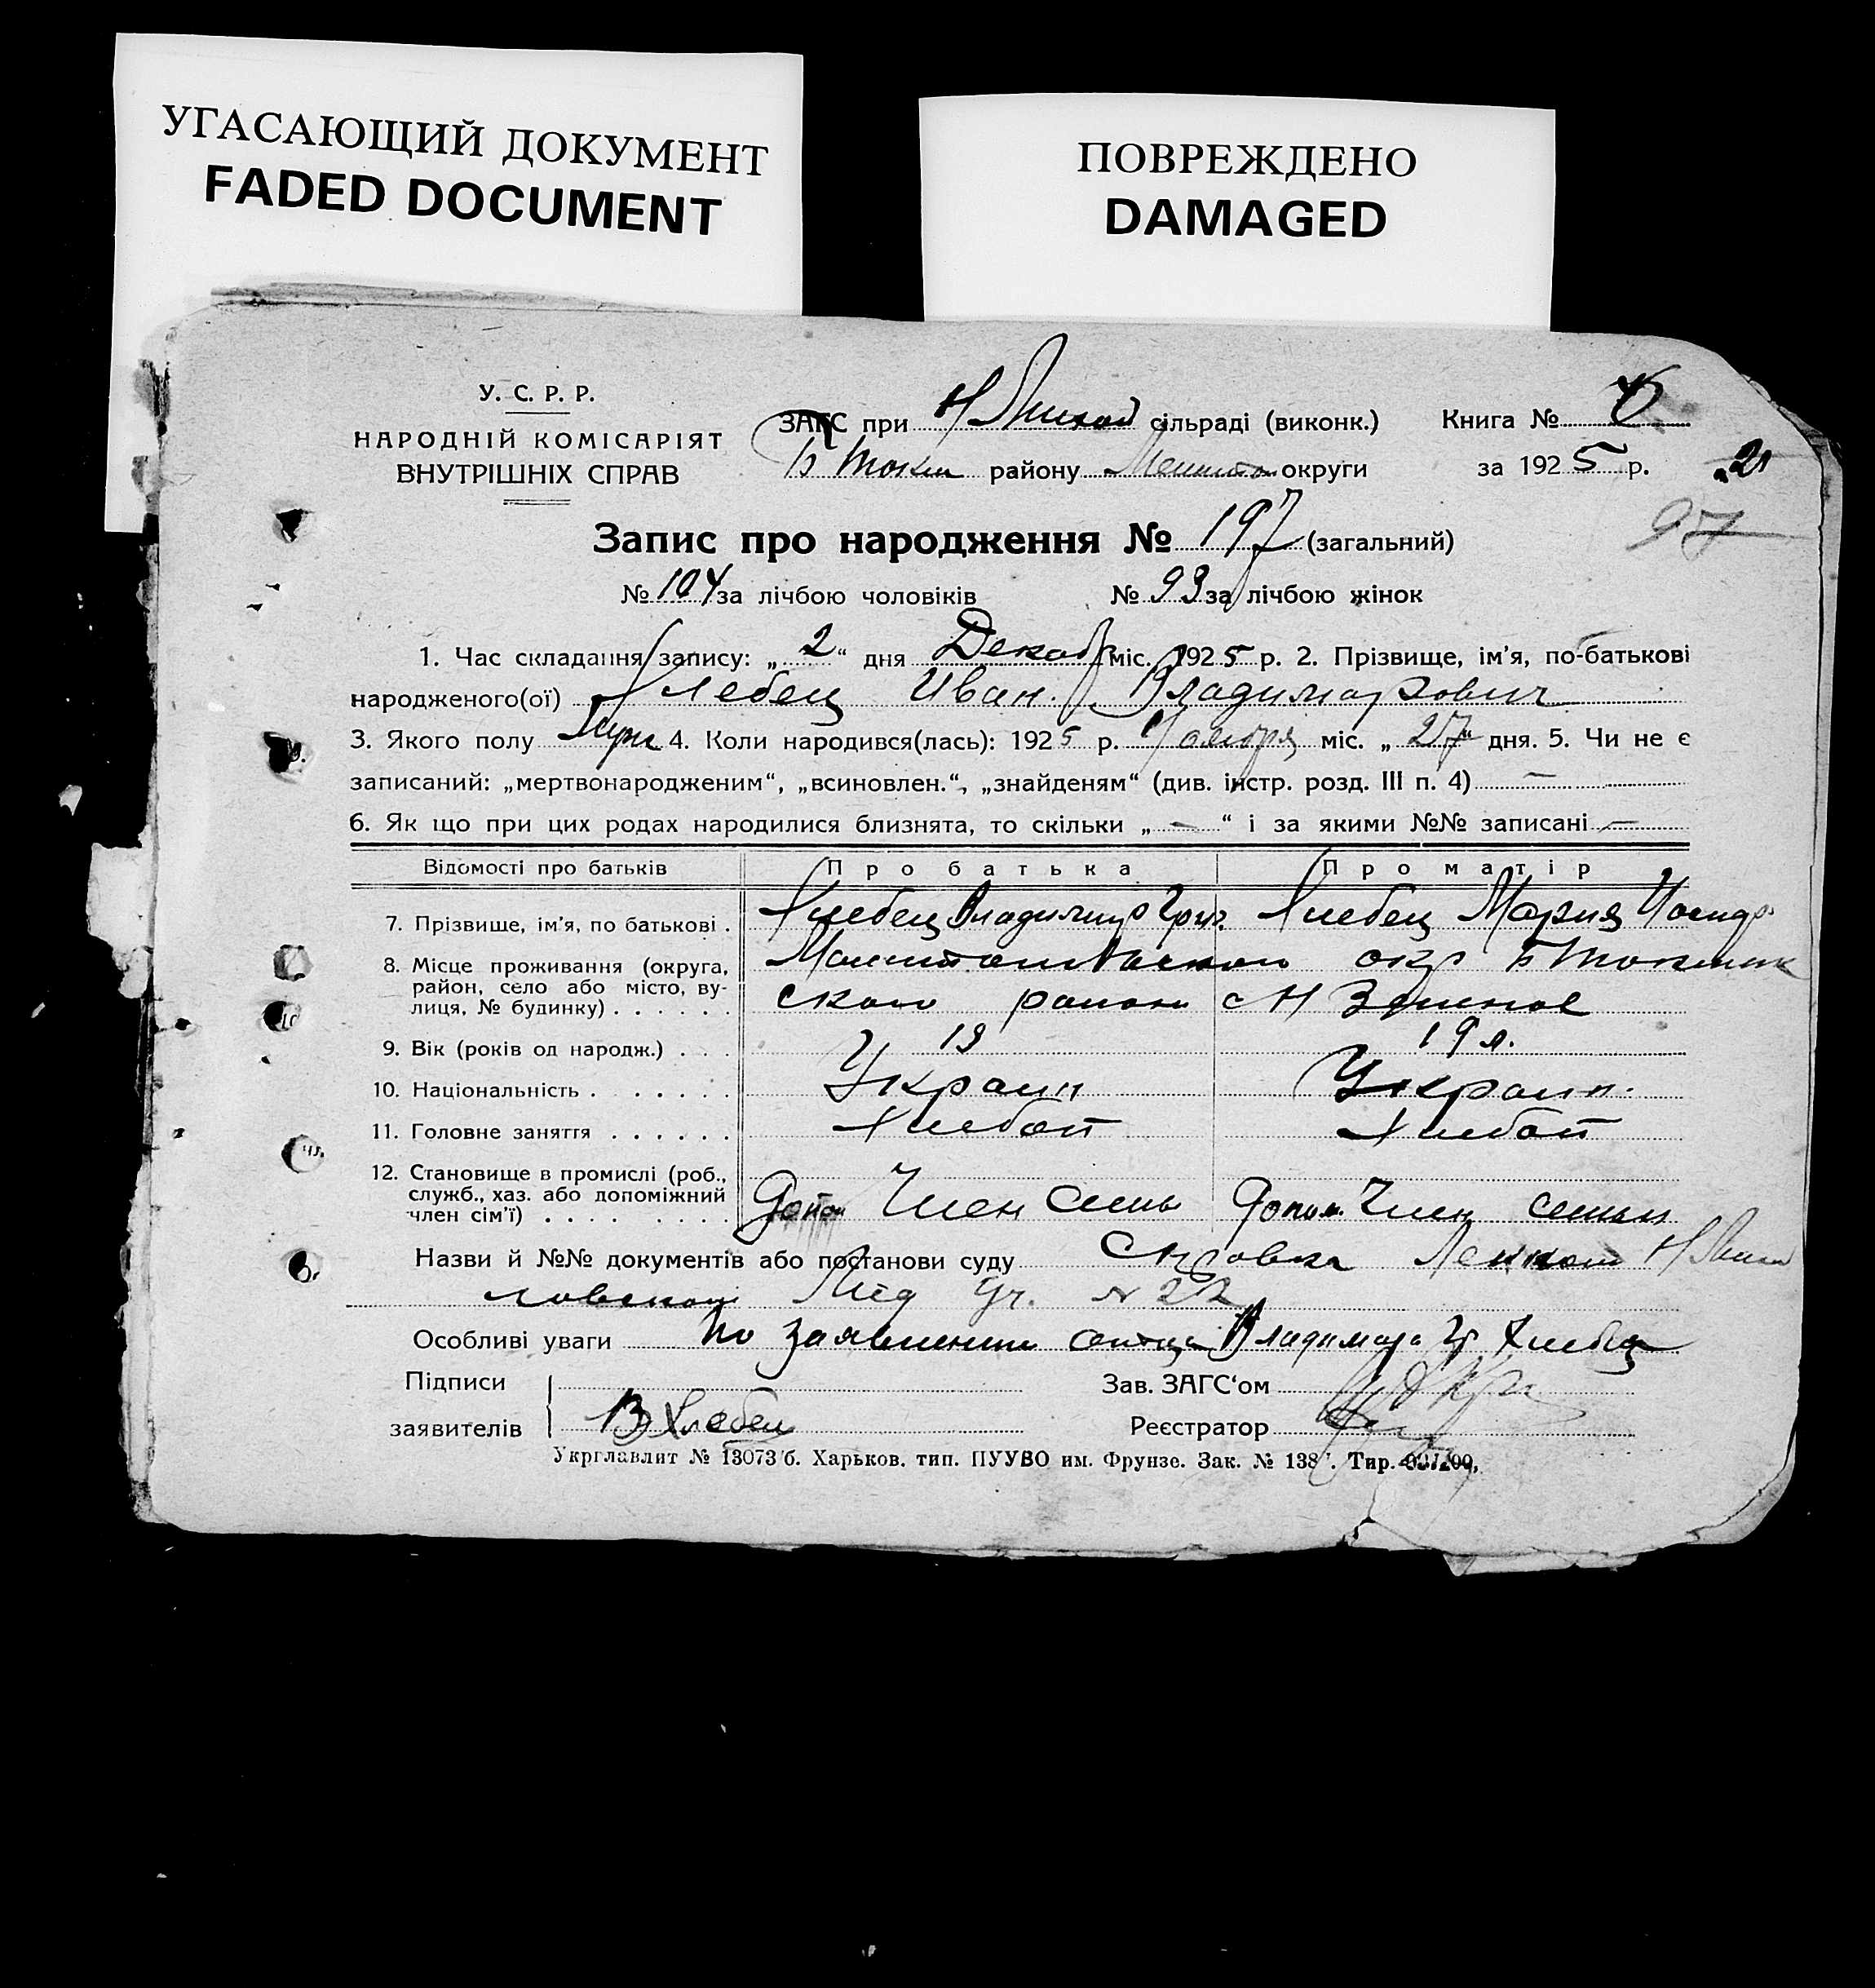 УГАСАЮЩИЙ ДОКУМЕНТ
FADED DOCUMENT
ПОВРЕЖДЕНО
DAMAGED
У. С. Р. Р.
НАРОДНІЙ КОМІСАРІЯТ
ВНУТРІШНІХ СПРАВ
ЗАГС при сільраді (виконк.) Книга №
Б Токм району округи за 1925 р. 21
97
Запис про народження № 197 (загальний)
№ 104 за лічбою чоловіків № 93 за лічбою жінок
1. Час складання запису: „ 2 “ дня Декабр міс. 1925 р. 2. Прізвище, ім'я, по-батькові
народженого(ої) Хлебец Иван Владимирович
3. Якого полу Муж 4. Коли народився(лась): 1925 р. Ноября міс. „ 27 “ дня. 5. Чи не є
записаний: „мертвонародженим“, „всиновлен.“, „знайденям“ (див. інстр. розд. III п. 4) —
6. Як що при цих родах народилися близнята, то скільки „ — “ і за якими №№ записані —
Відомості про батьків Про батька Про матір
7. Прізвище, ім'я, по батькові . Хлебец Владимир Григ. Хлебец Мария
8. Місце проживання (округа, окр Б Токмак
район, село або місто, ву-
лиця, № будинку) . . . . . . ского район с Н
9. Вік (років од народж.) . . . 19 19 л.
10. Національність . . . . . . Украин Украин.
11. Головне заняття . . . . . . Хлебоп Хлебоп
12. Становище в промислі (роб.,
служб., хаз. або допоміжний
член сім'ї) . . . . . . . . Допом Член семьи Допом. Член семьи
Назви й №№ документів або постанови суду Справка
Мед Уч. № 22
Особливі уваги По заявлению отца Владимира Гр. Хлебец
Підписи Зав. ЗАГС'ом
заявителів В Хлебец Реєстратор
Укрглавлит № 13073/б. Харьков. тип. ПУУВО им. Фрунзе. Зак. № 138 . Тир.